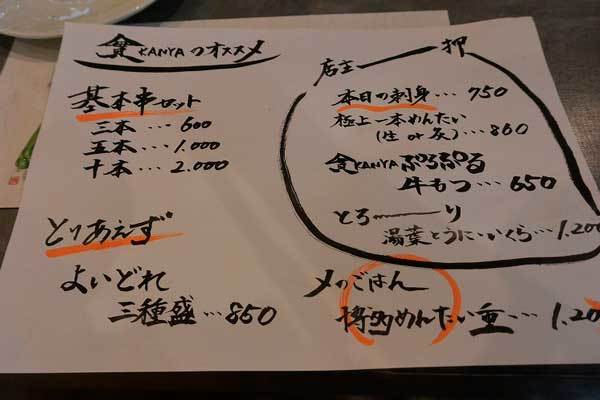 食KANYAのオススメ
基本串セット
三本…600
五本…1.000
十本…2.000
とりあえず
よいどれ
三種盛…850
店主一押
本日の刺身…750
極上一本めんたい
(生 or 灰)…860
食KANYA ぷるぷる
牛もつ…650
とろーり
湯葉とうにいくら…1.200
〆のごはん
博多めんたい重…1.20